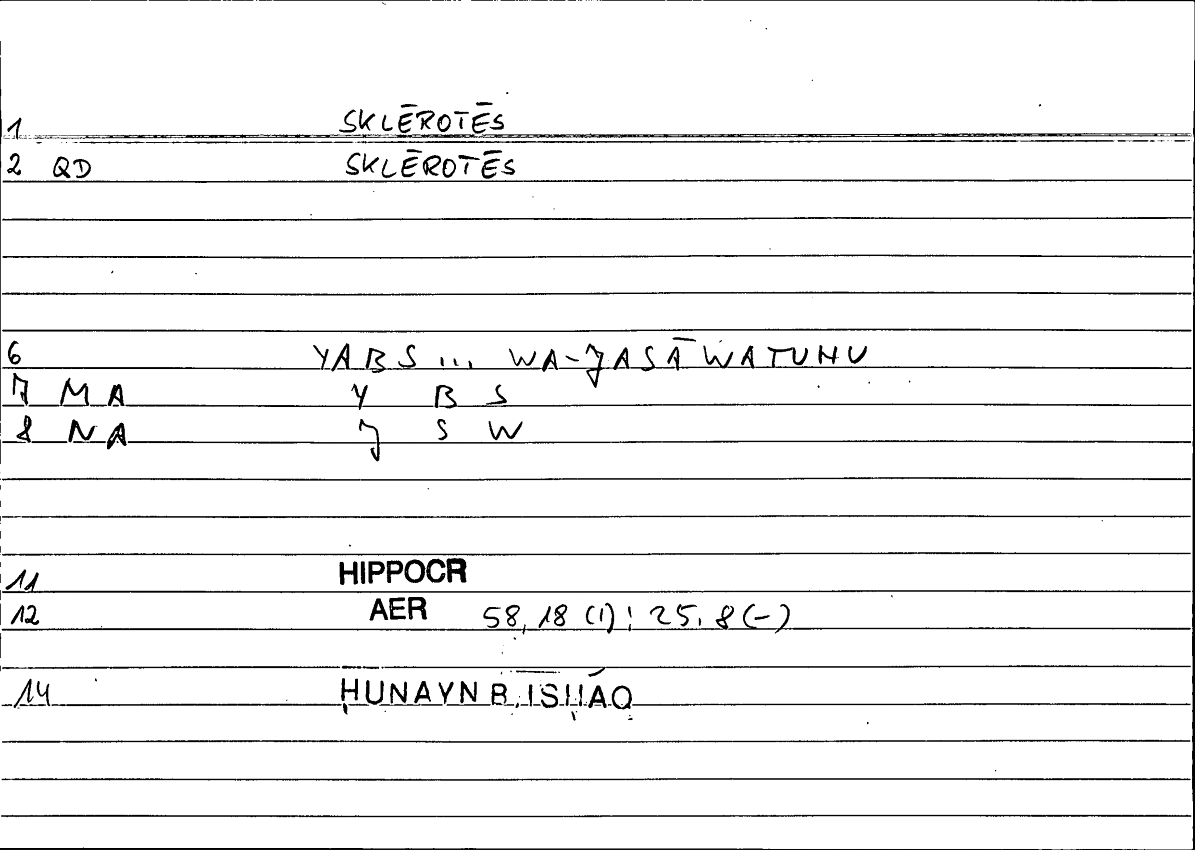 1 SKLĒROTĒS
2 QD SKLĒROTĒS
6 YABS ... WA-JASĀWATUHU
7 MA Y B S
8 NA J S W
11 HIPPOCR
12 AER 58,18 (1); 25,8 (-)
14 ḤUNAYN B. ISḤĀQ